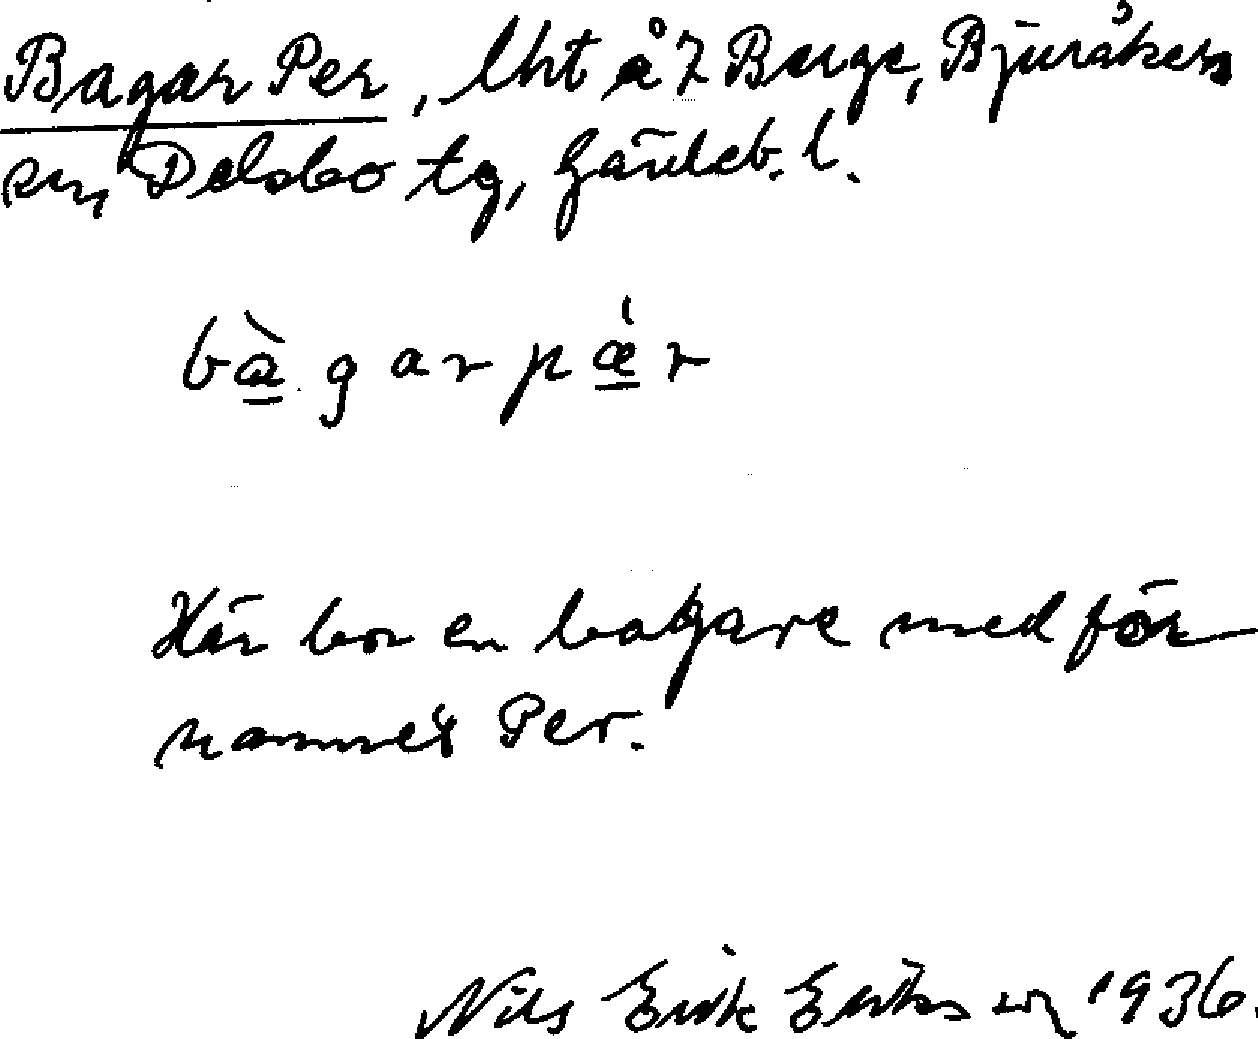 Bagar Per, lht å 7 Berge, Bjuråkers
sn, Delsbo tg, Gävleb. l.
bà̲garpǽ̲r
Här bor en bagare med för
namnet Per.
Nils Erik Eriksson 1936.